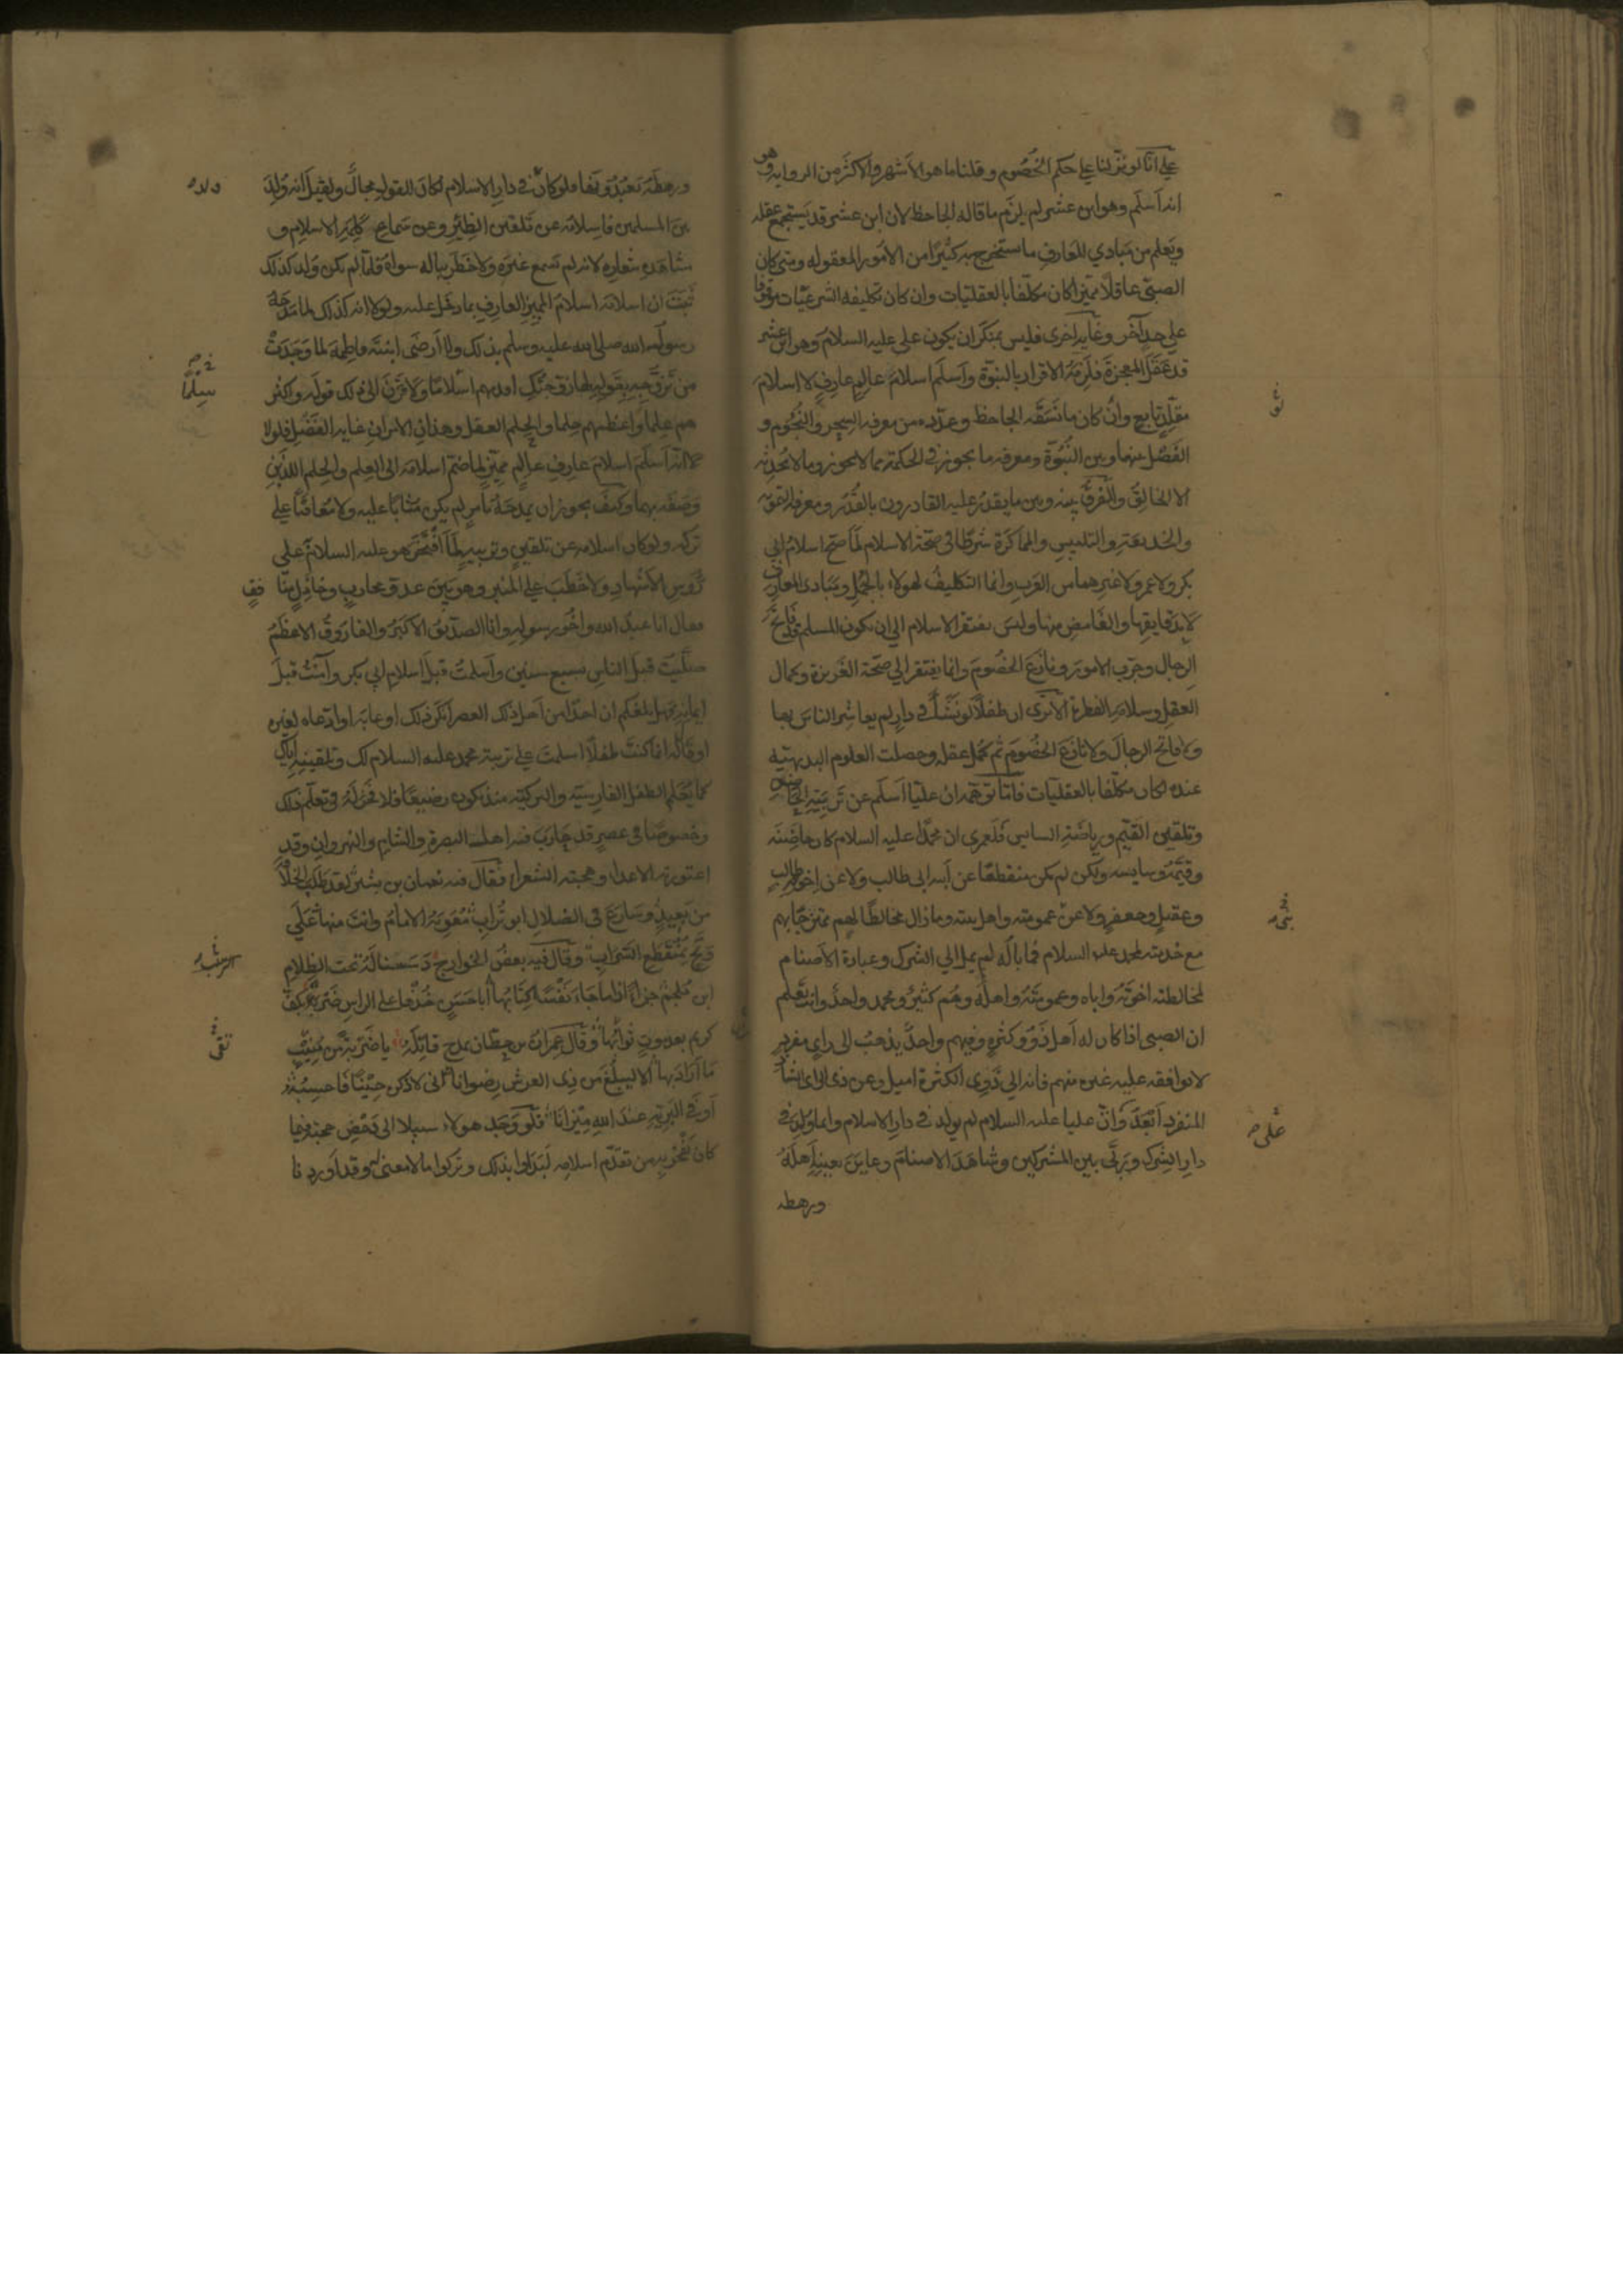 على انا لو نزلنا على حكم الخصوم وقلنا ما هو الاشهر والاكثر من الرواية وهو
انه اسلم وهو ابن عشر لم يلزم ما قاله الجاحظ لان ابن عشر قد يستجمع عقله
ويعلم من مبادي المعارف ما يستخرج به كثيرا من الامور المعقوله ومتى كان
الصبي عاقلا مميزا كان مكلفا بالعقليات وان كان تكليفه الشرعيات موقوفا
على حد آخر وغاية اخرى فليس بمنكر ان يكون علي عليه السلام وهو ابن عشر
قد عقل المعجزة فلزمه الاقرار بالنبوة واسلم اسلام عالم عارف لا اسلام
مقلد تابع وان كان ما نسقه الجاحظ وعدده من معرفة السحر والنجوم و
الفصل بينهما وبين النبوة ومعرفة ما يجوز في الحكمة مما لا يجوز وما لا يحدثه
الا الخالق والفرق بينه وبين ما يقدر عليه القادرون بالقدر ومعرفة التمويه
والخديعة والتلبيس والمماكرة شرطا في صحة الاسلام لما صح اسلام ابي
بكر ولا عمر ولا غيرهما من العرب وانما التكليف لهولاء بالجمل ومبادى المعارف
لا بدقايقها والغامض منها وليس يفتقر الاسلام الى ان يكون المسلم قد فاتح
الرجال وجرب الامور ونازع الخصوم وانما يفتقر الى صحة الغريزة وكمال
العقل وسلامة الفطرة الا ترى ان طفلا لو نشأ في دار لم يعاشر الناس بها
ولا فاتح الرجال ولا نازع الخصوم ثم كمل عقله وحصلت العلوم البديهية
عنده لكان مكلفا بالعقليات فاما توهمه ان عليا اسلم عن تربية الحاضن
وتلقين القيم ورياضة السايس فلعمرى ان محمدا عليه السلام كان حاضنه
وقيمه وسايسه ولكن لم يكن منقطعا عن ابيه ابي طالب ولا عن اخوته طالب
وعقيل وجعفر ولا عن عمومته واهل بيته وما زال مخالطا لهم ممتزجا بهم
مع خدمته لمحمد عليه السلام فما باله لم يمل الى الشرك وعبادة الاصنام
لمخالطته اخوته واباه وعمومته واهله وهم كثير ومحمد واحد وانت تعلم
ان الصبي اذا كان له اهل ذوو كثرة وفيهم واحد يذهب الى راي مفرد
لا يوافقه عليه غيره منهم فانه الى ذوي الكثرة اميل وعن ذي الراى الشاذ
المنفرد ابعد وان عليا عليه السلام لم يولد في دار الاسلام وانما ولد في
دار الشرك وربى بين المشركين وشاهد الاصنام وعاين بعينه اهله
ورهطه
ورهطه يعبدونها فلو كان في دار الاسلام لكان للقول مجال ولقيل انه ولد
بين المسلمين فاسلامه عن تلقين الظئر وعن سماع كلمة الاسلام و
مشاهدة شعاره لانه لم يسمع غيره ولا خطر بباله سواه فلما لم يكن ولد كذلك
ثبت ان اسلامه اسلام المميز العارف بما دخل عليه ولولا انه كذلك لما مدحه
رسول الله صلى الله عليه وسلم بذلك ولا ارضى ابنته فاطمة لما وجدت
من تزوجه بقوله لها زوجتك اقدمهم اسلاما ولا قرن الى ذلك قوله واكثر
هم علما واعظمهم حلما والحلم العقل وهذان الامران غاية الفضل فلولا
انه اسلم اسلام عارف عالم مميز لما ضم اسلامه الى العلم والحلم اللذين
وصفه بهما وكيف يجوز ان يمدحه بامر لم يكن مثابا عليه ولا معاقبا على
تركه ولو كان اسلامه عن تلقين وتربية لما افتخر هو عليه السلام على
رؤس الاشهاد ولا خطب على المنبر وهو بين عدو محارب وخاذل منافق
فقال انا عبد الله واخو رسوله وانا الصديق الاكبر والفاروق الاعظم
صليت قبل الناس بسبع سنين واسلمت قبل اسلام ابي بكر وآمنت قبل
ايمانه فهل بلغكم ان احدا من اهل ذلك العصر انكر ذلك او عابه او ادعاه لغيره
او قال له انما كنت طفلا اسلمت على تربية محمد عليه السلام لك وتلقينه اياك
كما يعلم الطفل الفارسية والتركية منذ يكون رضيعا فلا فخر له في تعلم ذلك
وخصوصا في عصر قد حارب فيه اهل البصرة والشام والنهروان وقد
اعتورته الاعداء وهجته الشعراء فقال فيه نعمان بن بشير لقد طلب الخلافة
من بعيد وسارع في الضلال ابو تراب معوية الامام وانت منها على
وتح بمنقطع السراب وقال فيه بعض الخوارج دسسنا له تحت الظلام
ابن ملجم جزاء اذا ما جاء نفسا كتابها ابا حسن خذها على الراس ضربة بكف
كريم بعد موت ثوابها وقال عمران بن حطان يمدح قاتله يا ضربة من منيب
ما اراد بها الا ليبلغ من ذى العرش رضوانا انى لاذكره حينا فاحسبه
اوفى البرية عند الله ميزانا فلو وجد هولاء سبيلا الى دحض حجة فيما
كان يفخر به من تقدم اسلامه لبداوا بذلك وتركوا ما لا معنى له وقد اوردنا